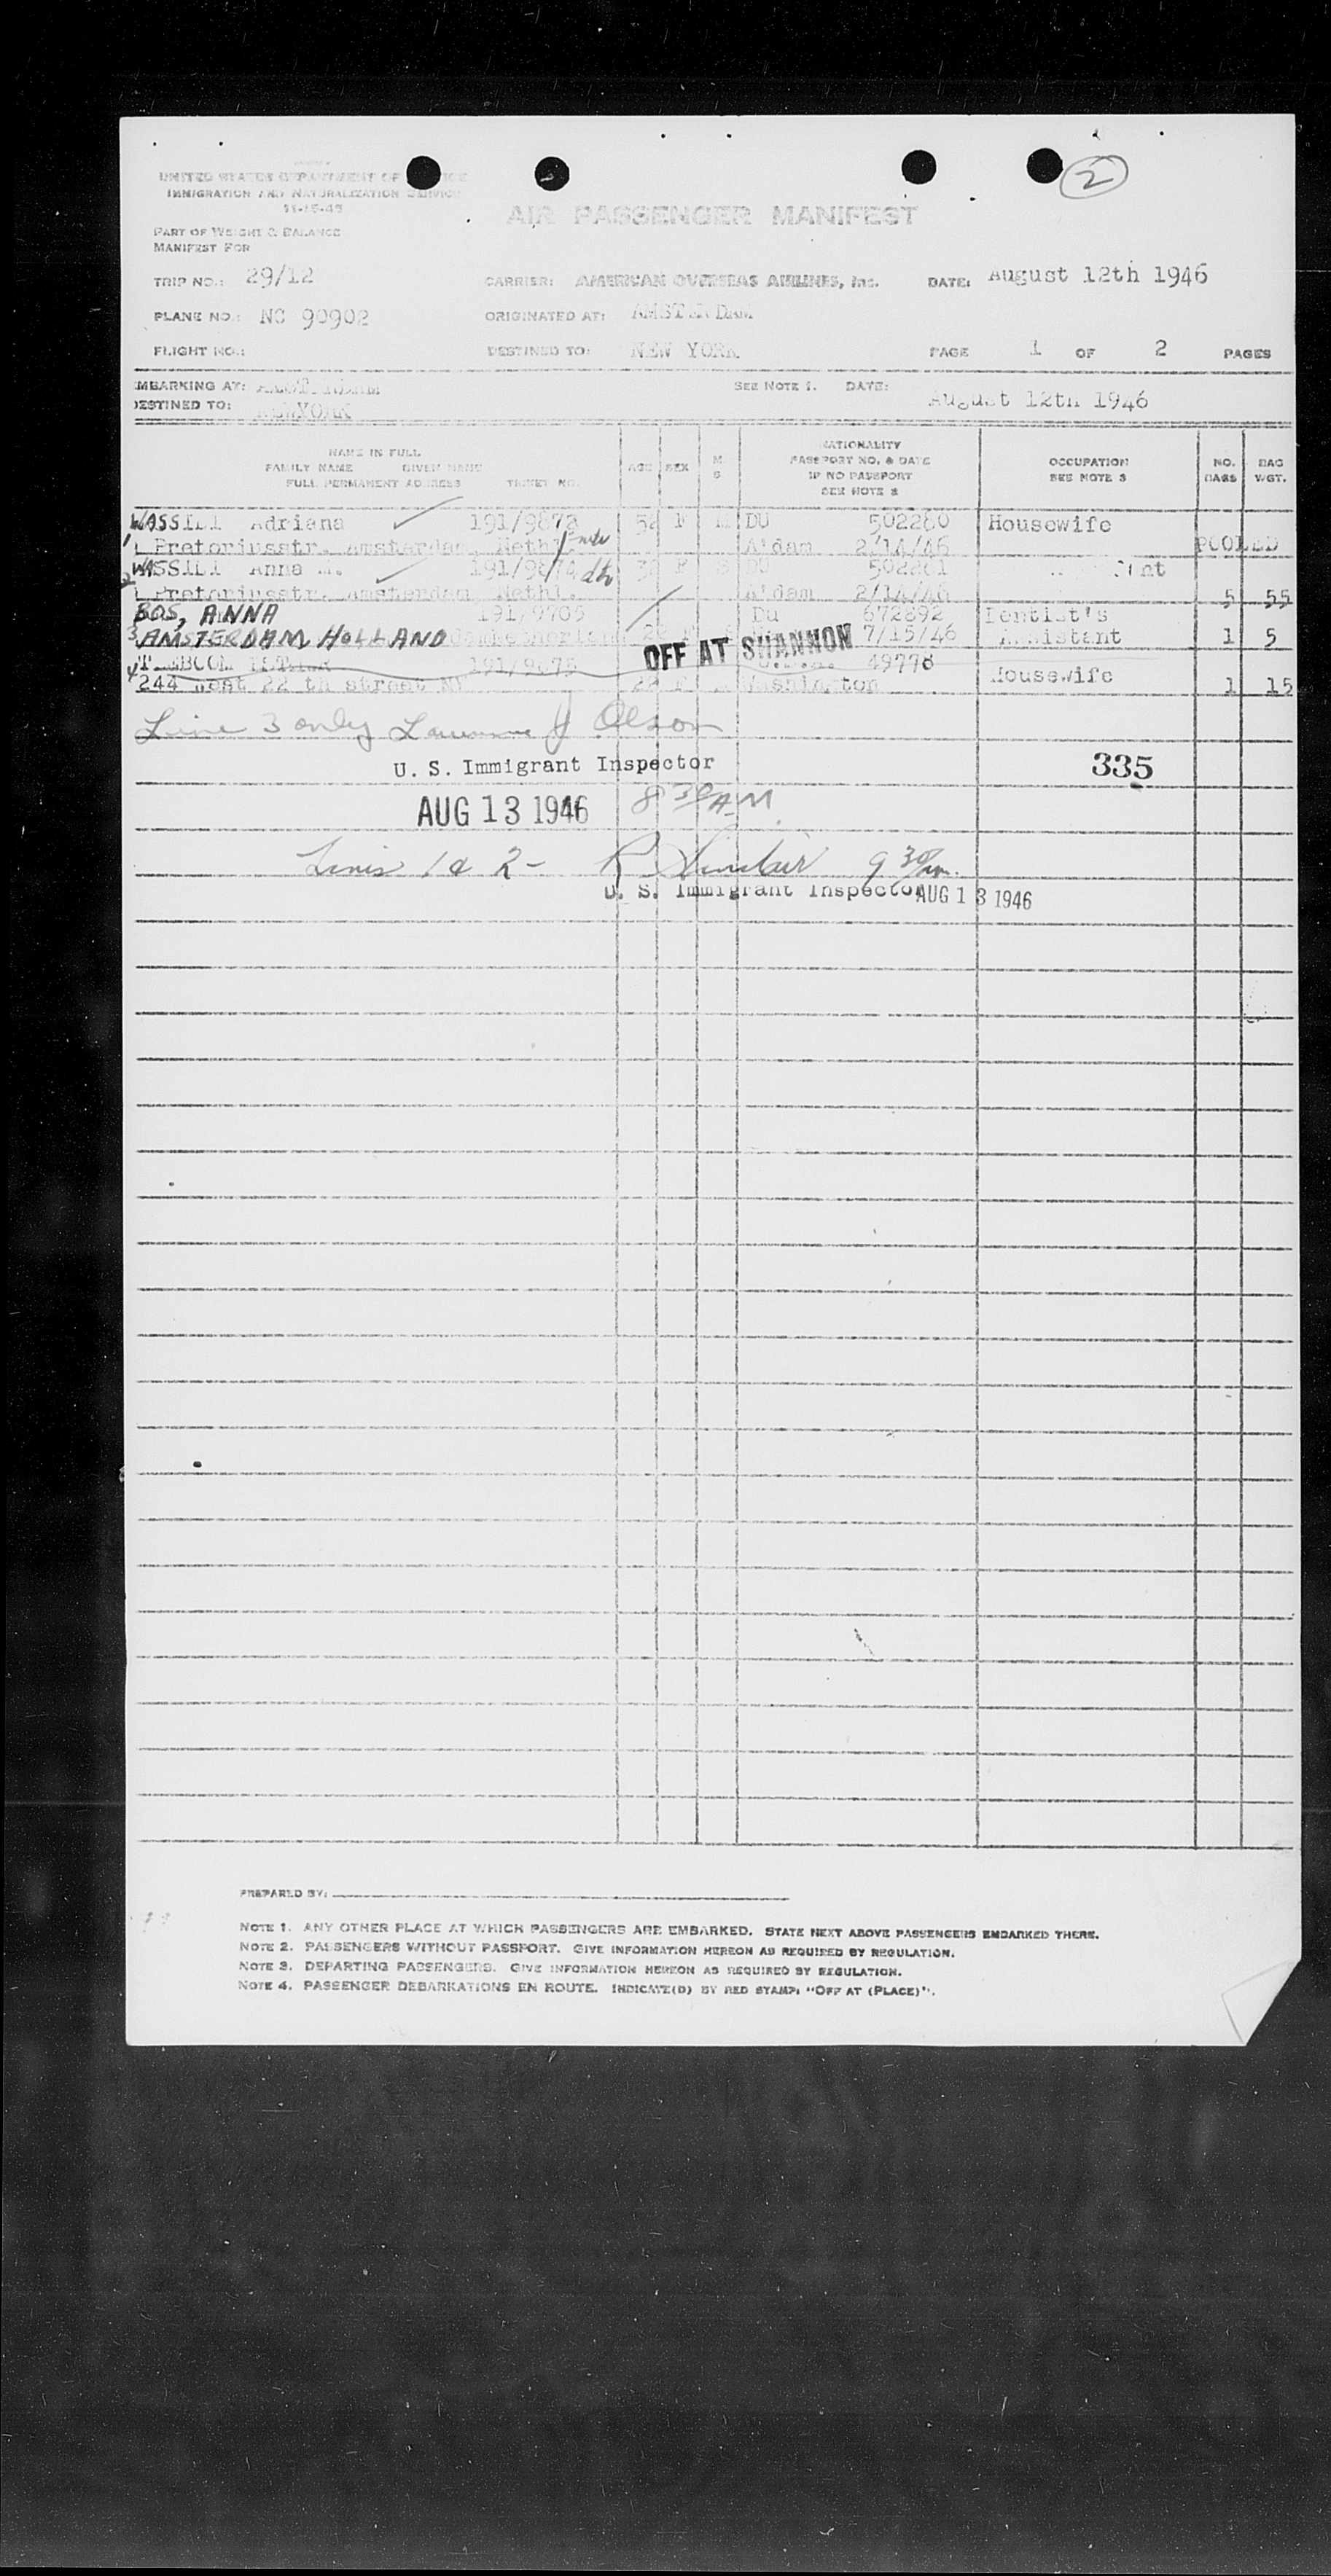 2
UNITED STATES DEPARTMENT OF
IMMIGRATION AND NATURALIZATION SERVICE
11-15-45
AIR PASSENGER MANIFEST
PART OF WEIGHT & BALANCE
MANIFEST FOR
TRIP NO.: 29/12 CARRIER: AMERICAN OVERSEAS AIRLINES, Inc. DATE: August 12th 1946
PLANE NO.: NC 90902 ORIGINATED AT: AMSTERDAM
FLIGHT NO.: DESTINED TO: NEW YORK PAGE 1 OF 2 PAGES
EMBARKING AT: AMSTERDAM SEE NOTE 1. DATE:
DESTINED TO: NEWYORK August 12th 1946
NAME IN FULL
FAMILY NAME GIVEN NAME
FULL PERMANENT ADDRESS TICKET NO.
AGE SEX M S
NATIONALITY
PASSPORT NO. & DATE
IF NO PASSPORT
SEE NOTE 2
OCCUPATION
SEE NOTE 3
NO. BAGS
BAG WGT.
Adriana 191/9873 52 F M DU 502280 Housewife
1 Pretoriusstr. Amsterdam, Nethl. A'dam 2/14/46 POOLED
2 Anna 191/9874 F S DU 502281
Pretoriusstr. Amsterdam, Nethl. A'dam 2/14/46 5 55
BOS, ANNA 191/9705 Du 672892 Dentist's
3 AMSTERDAM HOLLAND 7/15/46 Assistant 1 5
OFF AT SHANNON
4 191/9875 U.S.A. 49778 Housewife
244 West 22 th street NY F Washington 1 15
Line 3 only J Olson
U. S. Immigrant Inspector 335
AUG 13 1946 8 30 AM
Lines 1 & 2 - R Sinclair 9 30
U. S. Immigrant Inspector AUG 13 1946
PREPARED BY:
NOTE 1. ANY OTHER PLACE AT WHICH PASSENGERS ARE EMBARKED. STATE NEXT ABOVE PASSENGERS EMBARKED THERE.
NOTE 2. PASSENGERS WITHOUT PASSPORT. GIVE INFORMATION HEREON AS REQUIRED BY REGULATION.
NOTE 3. DEPARTING PASSENGERS. GIVE INFORMATION HEREON AS REQUIRED BY REGULATION.
NOTE 4. PASSENGER DEBARKATIONS EN ROUTE. INDICATE(D) BY RED STAMP: "OFF AT (PLACE)".